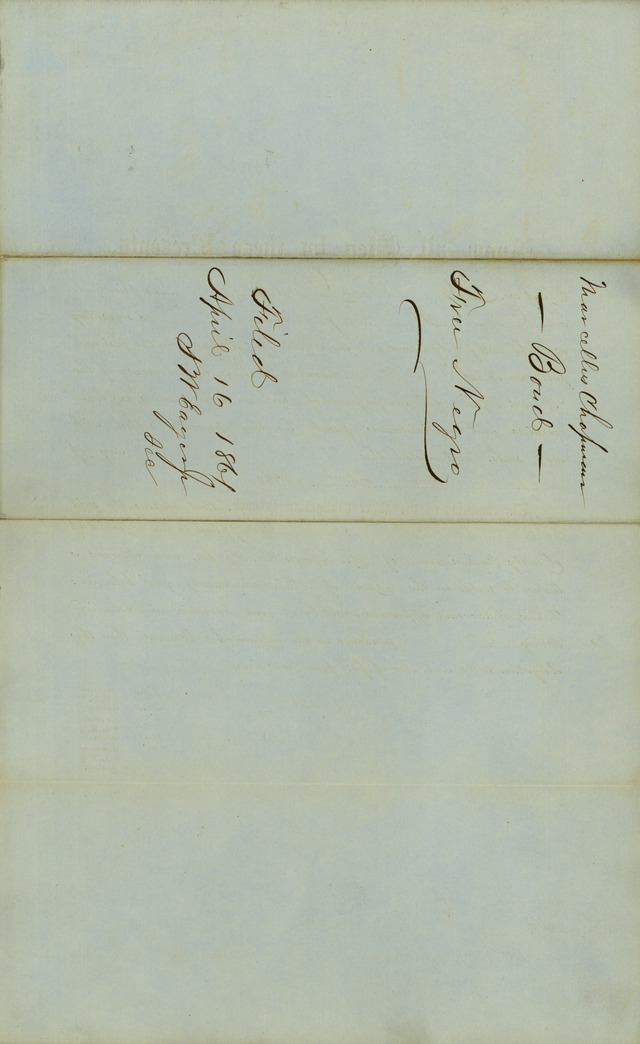 Marcellus Chapman
— Bond —
Free Negro
Filed
April 16 1861